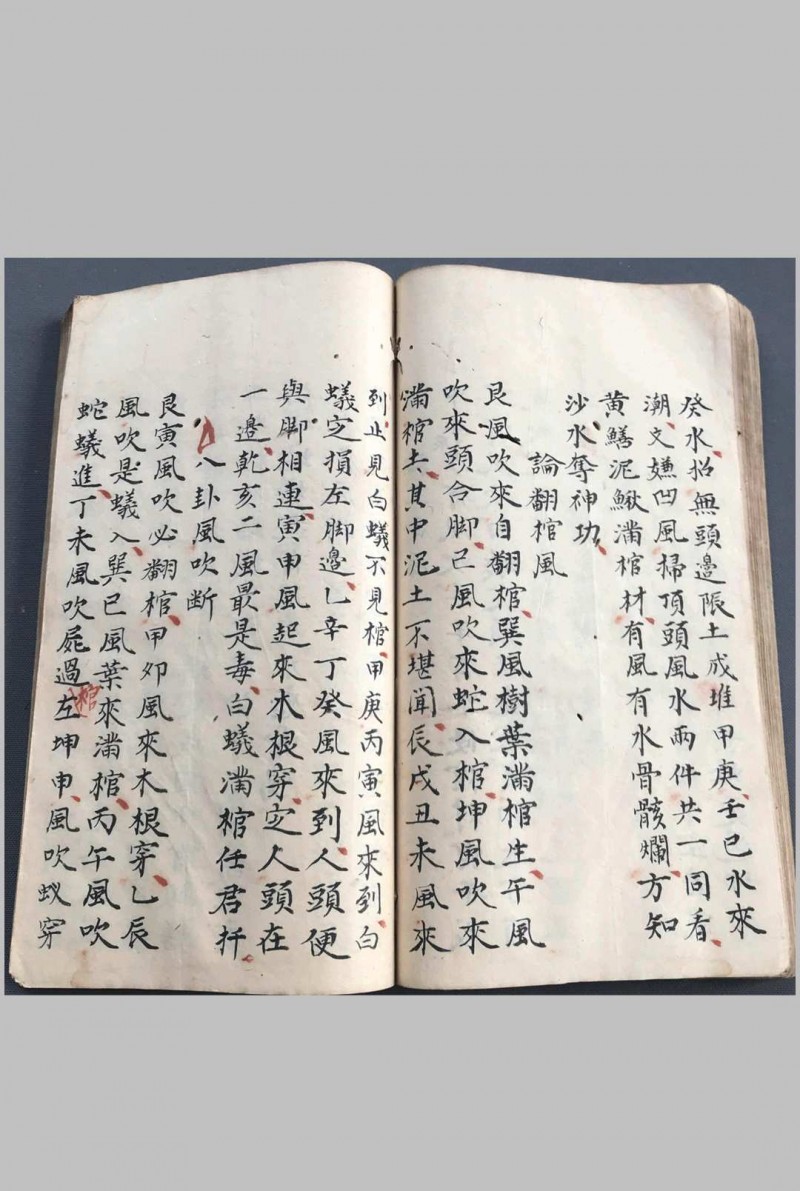 癸水招無頭邊賬土成堆甲庚壬巳水來
潮文嫌凹風掃頂頭風水兩件共一同看
黄鱔泥鰍滿棺材有風有水骨骸爛方知
沙水奪神功
論翻棺風
艮風吹來自翻棺巽風樹葉滿棺生午風
吹來頭合脚已風吹來蛇入棺坤風吹來
滿棺土其中泥土不堪聞辰戌丑未風來
到止見白蟻不見棺甲庚丙寅風來到白
蟻定損左脚邊乚辛丁癸風來到人頭便
與脚相連寅申風起來木根穿定人頭在
一邊乾亥二風最是毒白蟻滿棺任君扦
八卦風吹断
艮寅風吹必翻棺甲夘風來木根穿乚辰
風吹是蟻入巽巳風葉來滿棺丙午風吹
蛇蟻進丁未風吹屍過左棺坤申風吹蚁穿